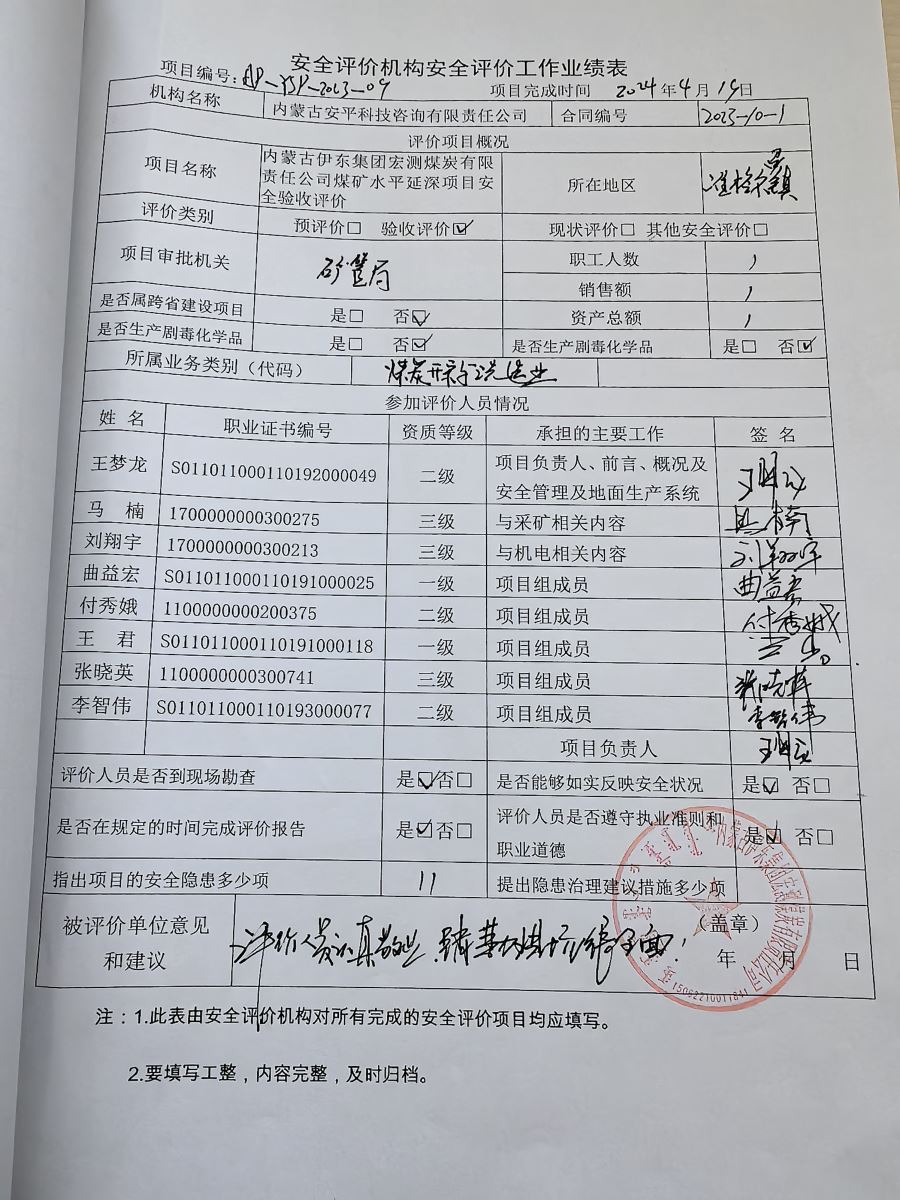 安全评价机构安全评价工作业绩表
项目编号:AP-YSP-2023-09 项目完成时间 2024年4月19日
机构名称 内蒙古安平科技咨询有限责任公司 合同编号 2023-10-1
评价项目概况
项目名称 内蒙古伊东集团宏测煤炭有限责任公司煤矿水平延深项目安全验收评价 所在地区 准格尔旗
评价类别 预评价□ 验收评价☑ 现状评价□ 其他安全评价□
项目审批机关 矿管局 职工人数 /
销售额 /
是否属跨省建设项目 是□ 否☑ 资产总额 /
是否生产剧毒化学品 是□ 否☑ 是否生产剧毒化学品 是□ 否☑
所属业务类别(代码) 煤炭开采和洗选业
参加评价人员情况
姓 名 职业证书编号 资质等级 承担的主要工作 签 名
王梦龙 S011011000110192000049 二级 项目负责人、前言、概况及安全管理及地面生产系统
马 楠 1700000000300275 三级 与采矿相关内容 马楠
刘翔宇 1700000000300213 三级 与机电相关内容 刘翔宇
曲益宏 S011011000110191000025 一级 项目组成员 曲益宏
付秀娥 1100000000200375 二级 项目组成员 付秀娥
王 君 S011011000110191000118 一级 项目组成员 王君
张晓英 1100000000300741 三级 项目组成员 张晓英
李智伟 S011011000110193000077 二级 项目组成员 李智伟
项目负责人
评价人员是否到现场勘查 是☑否□ 是否能够如实反映安全状况 是☑ 否□
是否在规定的时间完成评价报告 是☑否□ 评价人员是否遵守执业准则和职业道德 是☑ 否□
指出项目的安全隐患多少项 11 提出隐患治理建议措施多少项
被评价单位意见和建议 评价人员认真敬业,
(盖章)
年 月 日
15062210011841
注:1.此表由安全评价机构对所有完成的安全评价项目均应填写。
2.要填写工整,内容完整,及时归档。